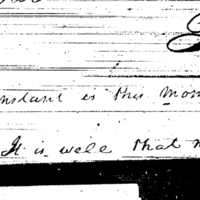 instant is this mon
It is well that